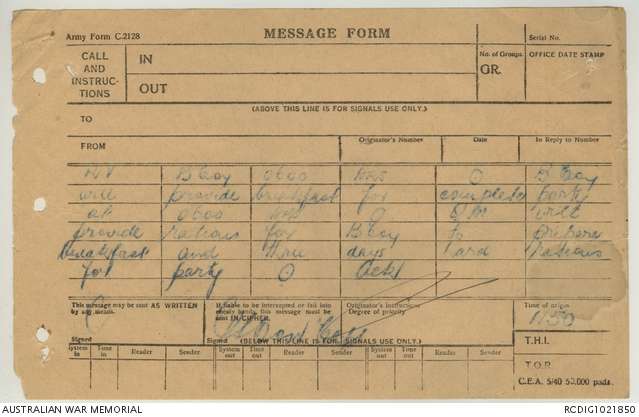 Army Form C.2128
MESSAGE FORM
Serial No.
CALL AND INSTRUCTIONS
IN
No. of Groups.
OFFICE DATE STAMP
GR.
OUT
(ABOVE THIS LINE IS FOR SIGNALS USE ONLY.)
TO
FROM
Originator's Number
Date
In Reply to Number
B Coy 0600 hrs O B Coy
will provide breakfast for complete party
at 0600 hrs O QM will
provide rations for B Coy to prepare
breakfast and three days hard rations
for party O
This message may be sent AS WRITTEN by any means.
If liable to be intercepted or fall into enemy hands, this message must be sent IN CIPHER.
Originator's Instructions
Degree of priority
Time of origin
1150
Signed
Signed
(BELOW THIS LINE IS FOR SIGNALS USE ONLY.)
T.H.I.
System in
Time in
Reader
Sender
System out
Time out
Reader
Sender
System out
Time out
Reader
Sender
T.O.R.
C.E.A. 5/40 50,000 pads.
AUSTRALIAN WAR MEMORIAL
RCDIG1021850